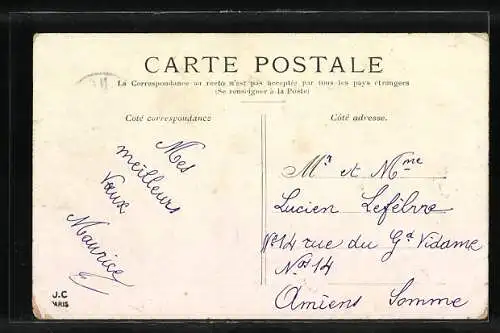 CARTE POSTALE
La Correspondance au recto n'est pas acceptée par tous les pays étrangers
(Se renseigner à la Poste)
Coté correspondance
Côté adresse.
Mes
meilleurs
Vœux
Maurice
Mr et Mme
Lucien Lefébvre
rue du Gd Vidame
Nos 14
Amiens Somme
J.C
PARIS